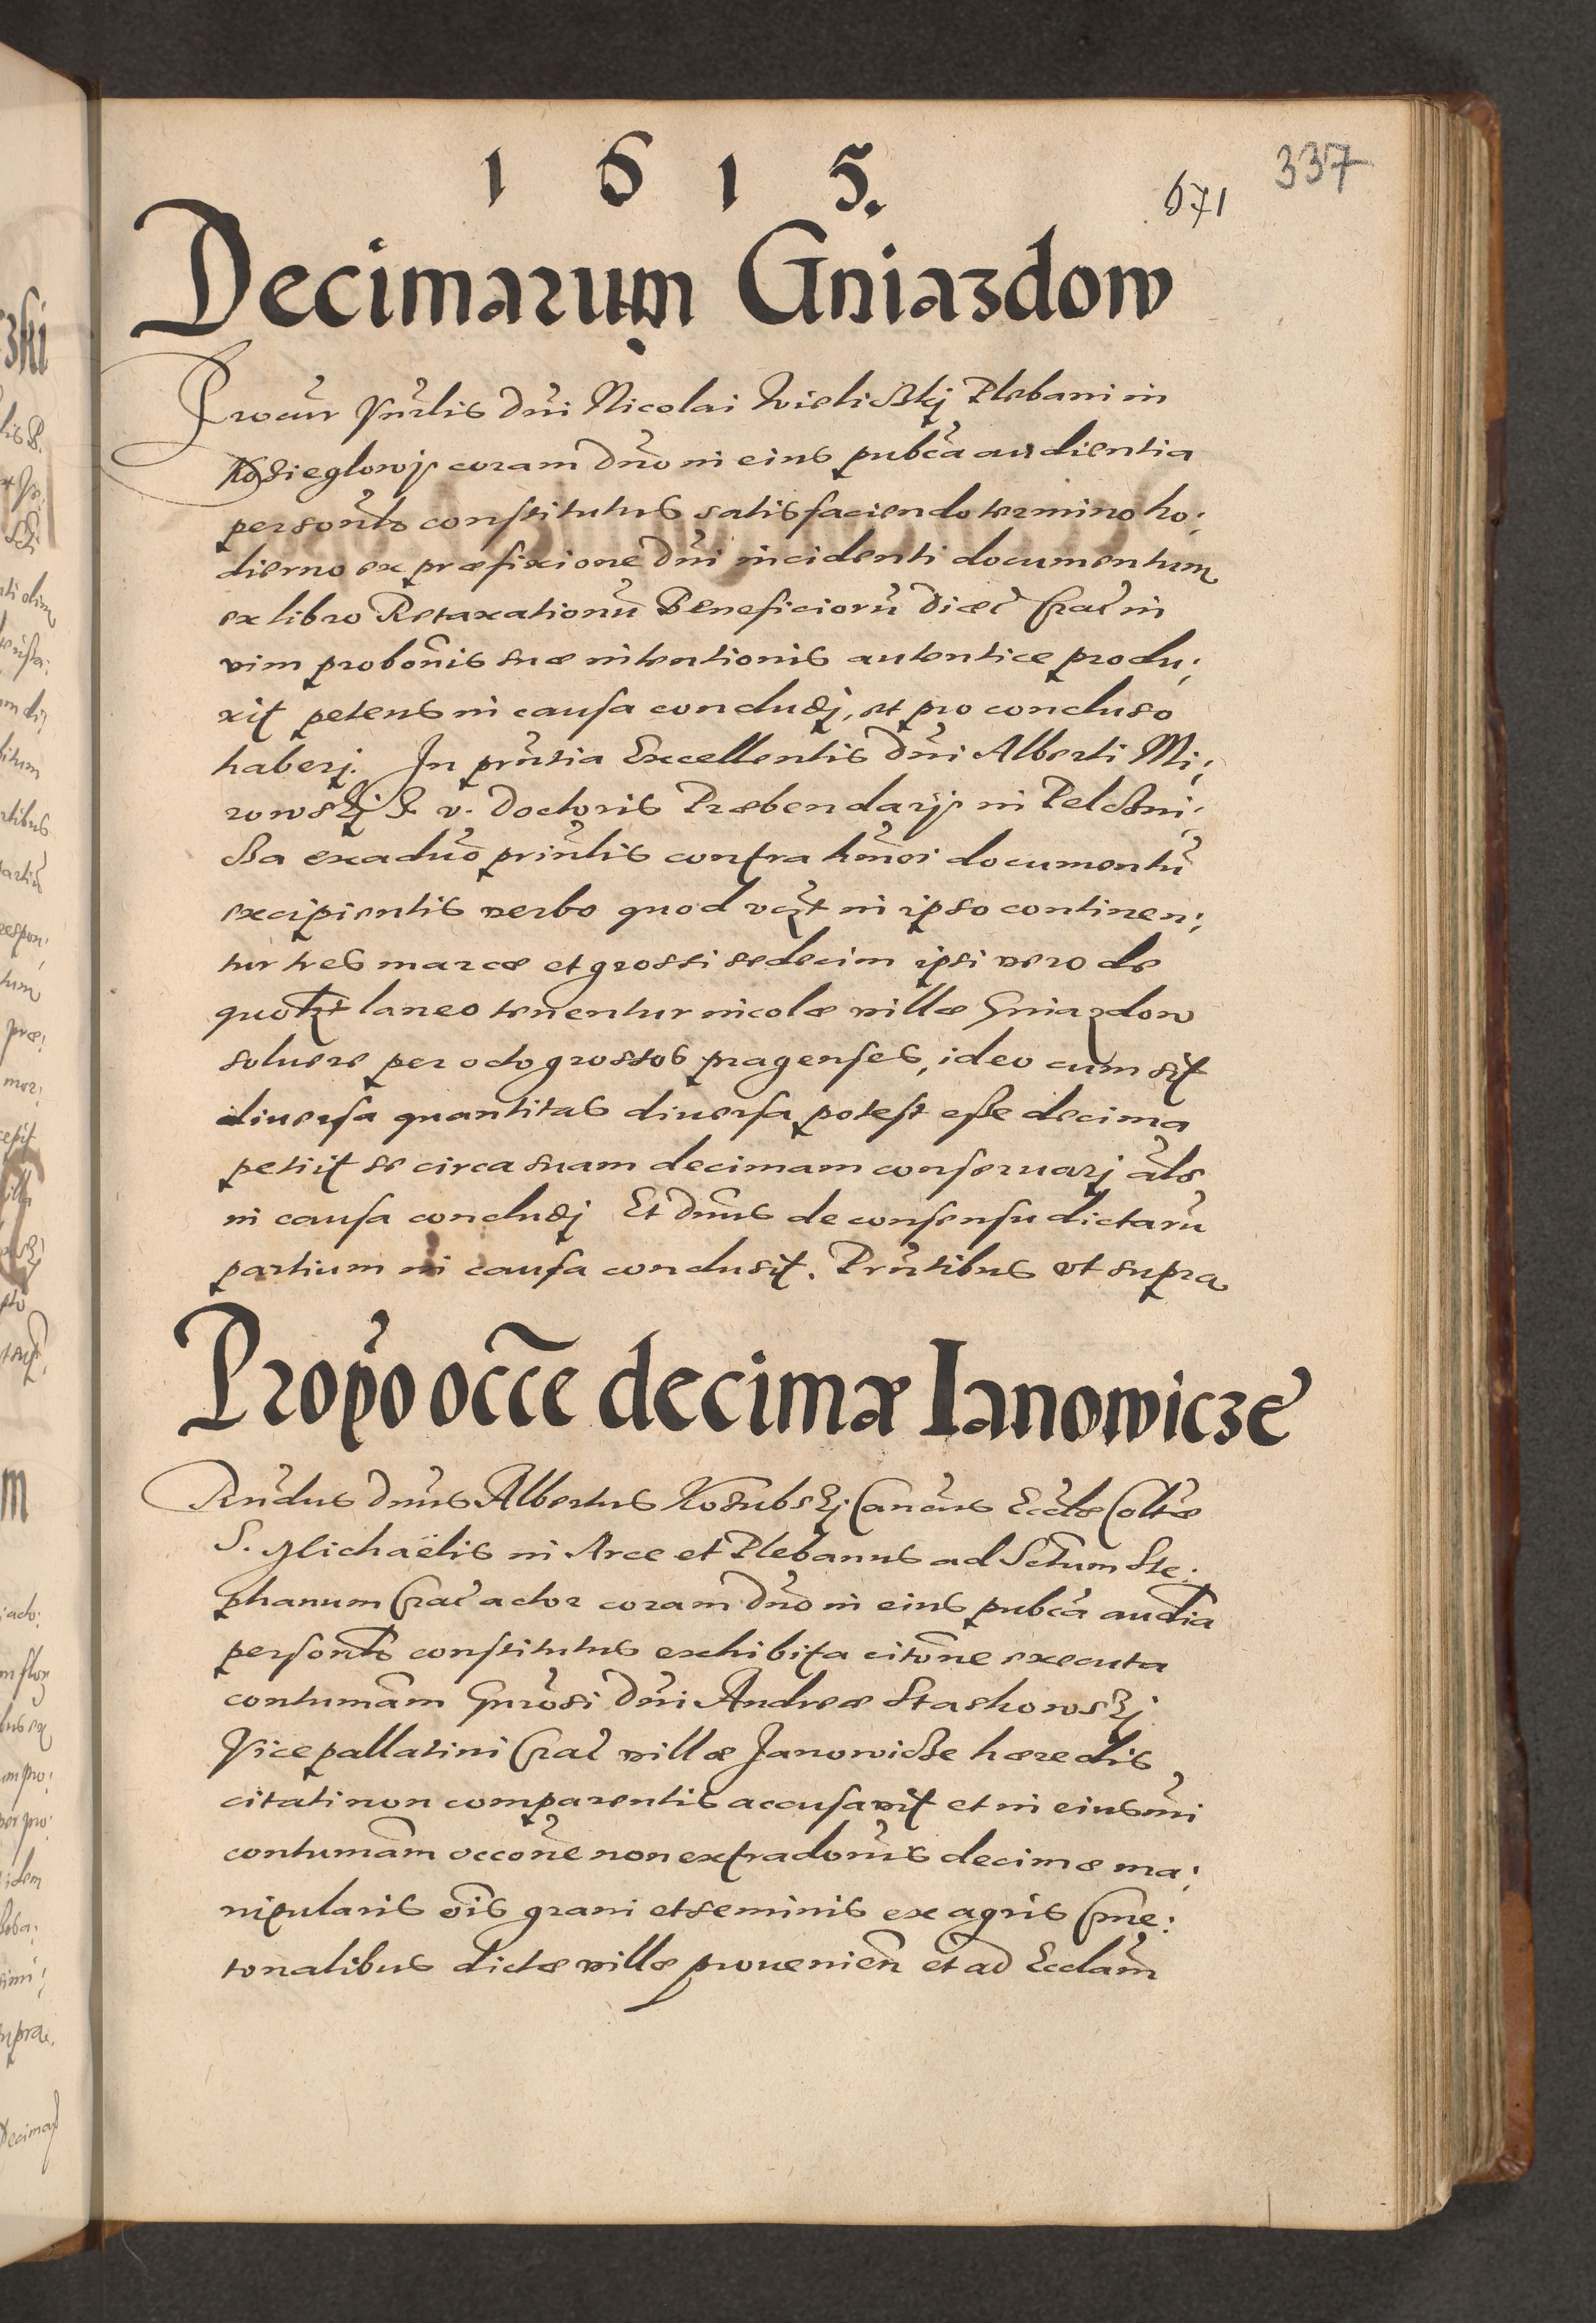 1 6 1 5.
671
337
Decimarum Gniazdow
Procur Vnrlis dni Nicolai Wieliczkj Plebani in
Kozieglowÿ coram dno in eius pubca audientia
personlr constitutus satisfaciendo termino ho:
dierno ex præfixione dni incidenti documentum
ex libro Retaxationu Beneficioru diæc Crac in
vim probonis suæ intentionis autentice produ:
xit petens in causa concludj, et pro concluso
haberj. In pruntia Excellentis dni Alberti Mi:
rowskj I. v. doctoris Præbendarÿ in Pelczni:
cza exaduo prinlis contra hmoi documentu
excipientis verbo quod in ipso continen:
tur tres marcæ et grossi sedecim ipsi vero de
quolzt laneo tenentur incolæ villæ Gniazdow
soluere per octo grossos pragenses, ideo cum sit
diuersa quantitas diuersa potest esse decima
petiit se circa suam decimam conseruarj als
in causa concludj Et dnus de consensu dictaru
partium in causa conclusit. Prntibus vt supra
Propo occne decimæ Ianowicze
Rndus dnus Albertus Kozubskj Cancus Eccle Coltæ
S. Michaëlis in Arce et Plebanus ad Sctum Ste:
phanum Crac actor coram dno in eius pubca audtia
personlr constitutus exhibita citone executa
contumam Gnrosi dni Andreæ Staskowskj
Vicepallatini Crac villæ Janowicze hæredis
citati non comparentis accusauit et in eiusmi
contumam occone non extradonis decimæ ma:
nipularis ois grani et seminis ex agris Cme:
tonalibus dictæ villæ prouenien et ad Ecclam